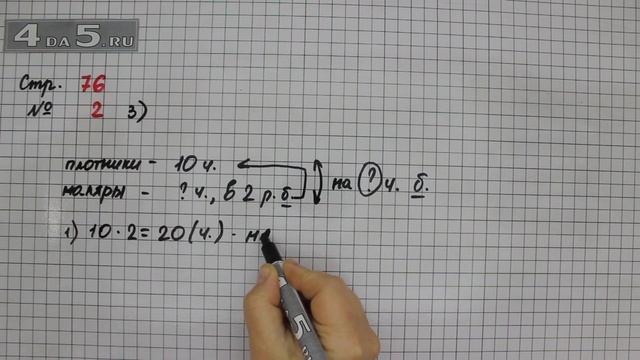 4DA5.RU
Стр. 76
№ 2 3)
плотники - 10 ч.
маляры - ? ч., в 2 р. б. на ? ч. б.
1) 10 · 2 = 20 (ч.) - м